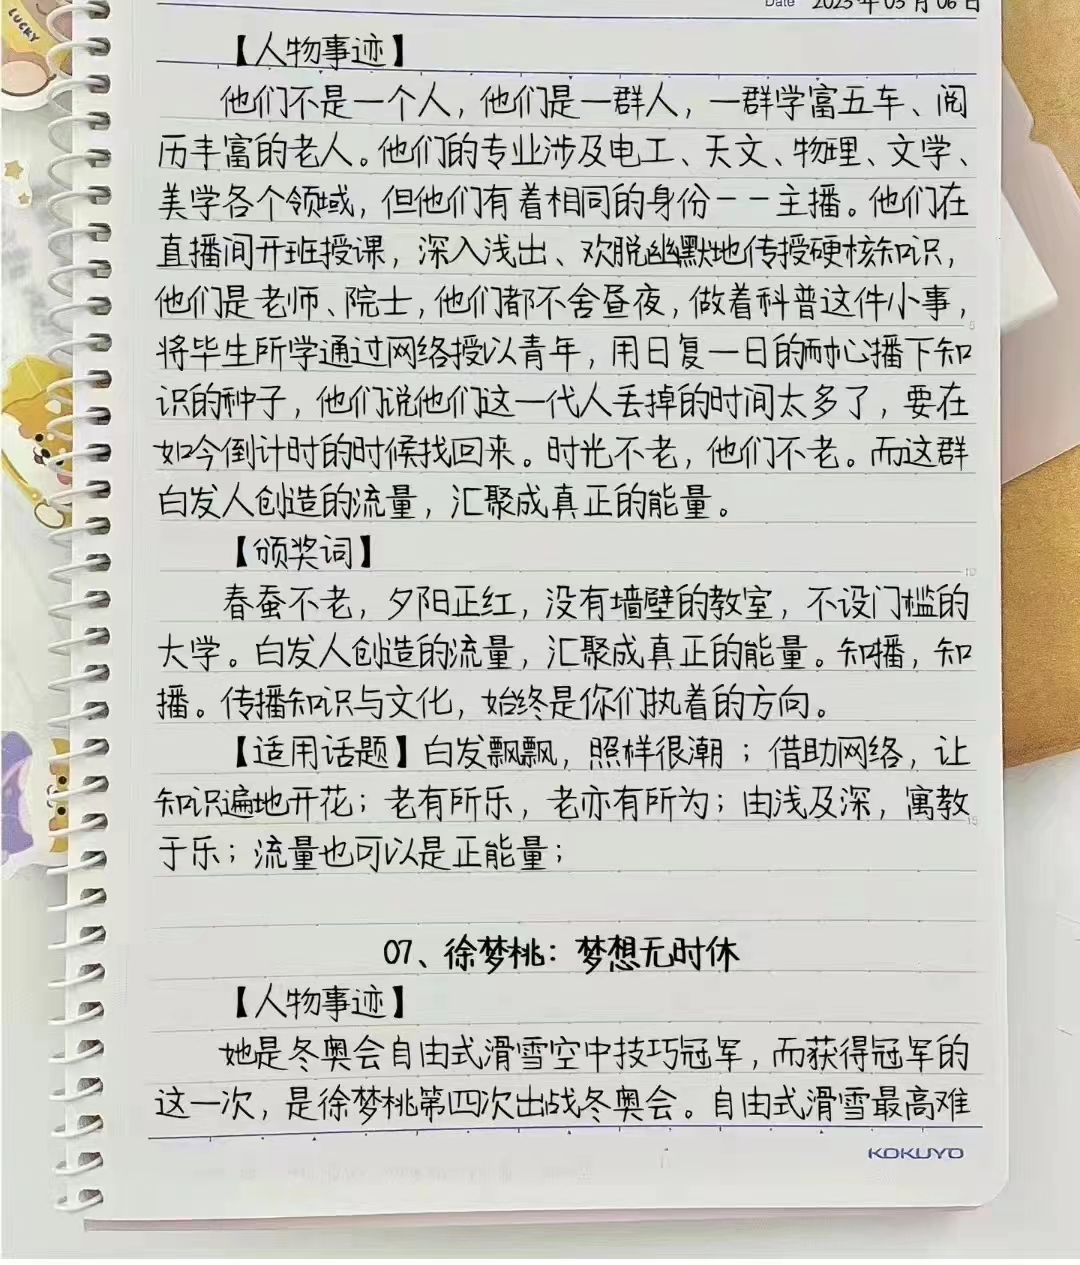 Date 2023年03月06日
【人物事迹】
他们不是一个人，他们是一群人，一群学富五车、阅
历丰富的老人。他们的专业涉及电工、天文、物理、文学、
美学各个领域，但他们有着相同的身份－－主播。他们在
直播间开班授课，深入浅出、欢脱幽默地传授硬核知识，
他们是老师、院士，他们都不舍昼夜，做着科普这件小事，
将毕生所学通过网络授以青年，用日复一日的耐心播下知
识的种子，他们说他们这一代人丢掉的时间太多了，要在
如今倒计时的时候找回来。时光不老，他们不老。而这群
白发人创造的流量，汇聚成真正的能量。
【颁奖词】
春蚕不老，夕阳正红，没有墙壁的教室，不设门槛的
大学。白发人创造的流量，汇聚成真正的能量。知播，知
播。传播知识与文化，始终是你们执着的方向。
【适用话题】白发飘飘，照样很潮；借助网络，让
知识遍地开花；老有所乐，老亦有所为；由浅及深，寓教
于乐；流量也可以是正能量；
07、徐梦桃：梦想无时休
【人物事迹】
她是冬奥会自由式滑雪空中技巧冠军，而获得冠军的
这一次，是徐梦桃第四次出战冬奥会。自由式滑雪最高难
KOKUYO
LUCKY
5
10
15